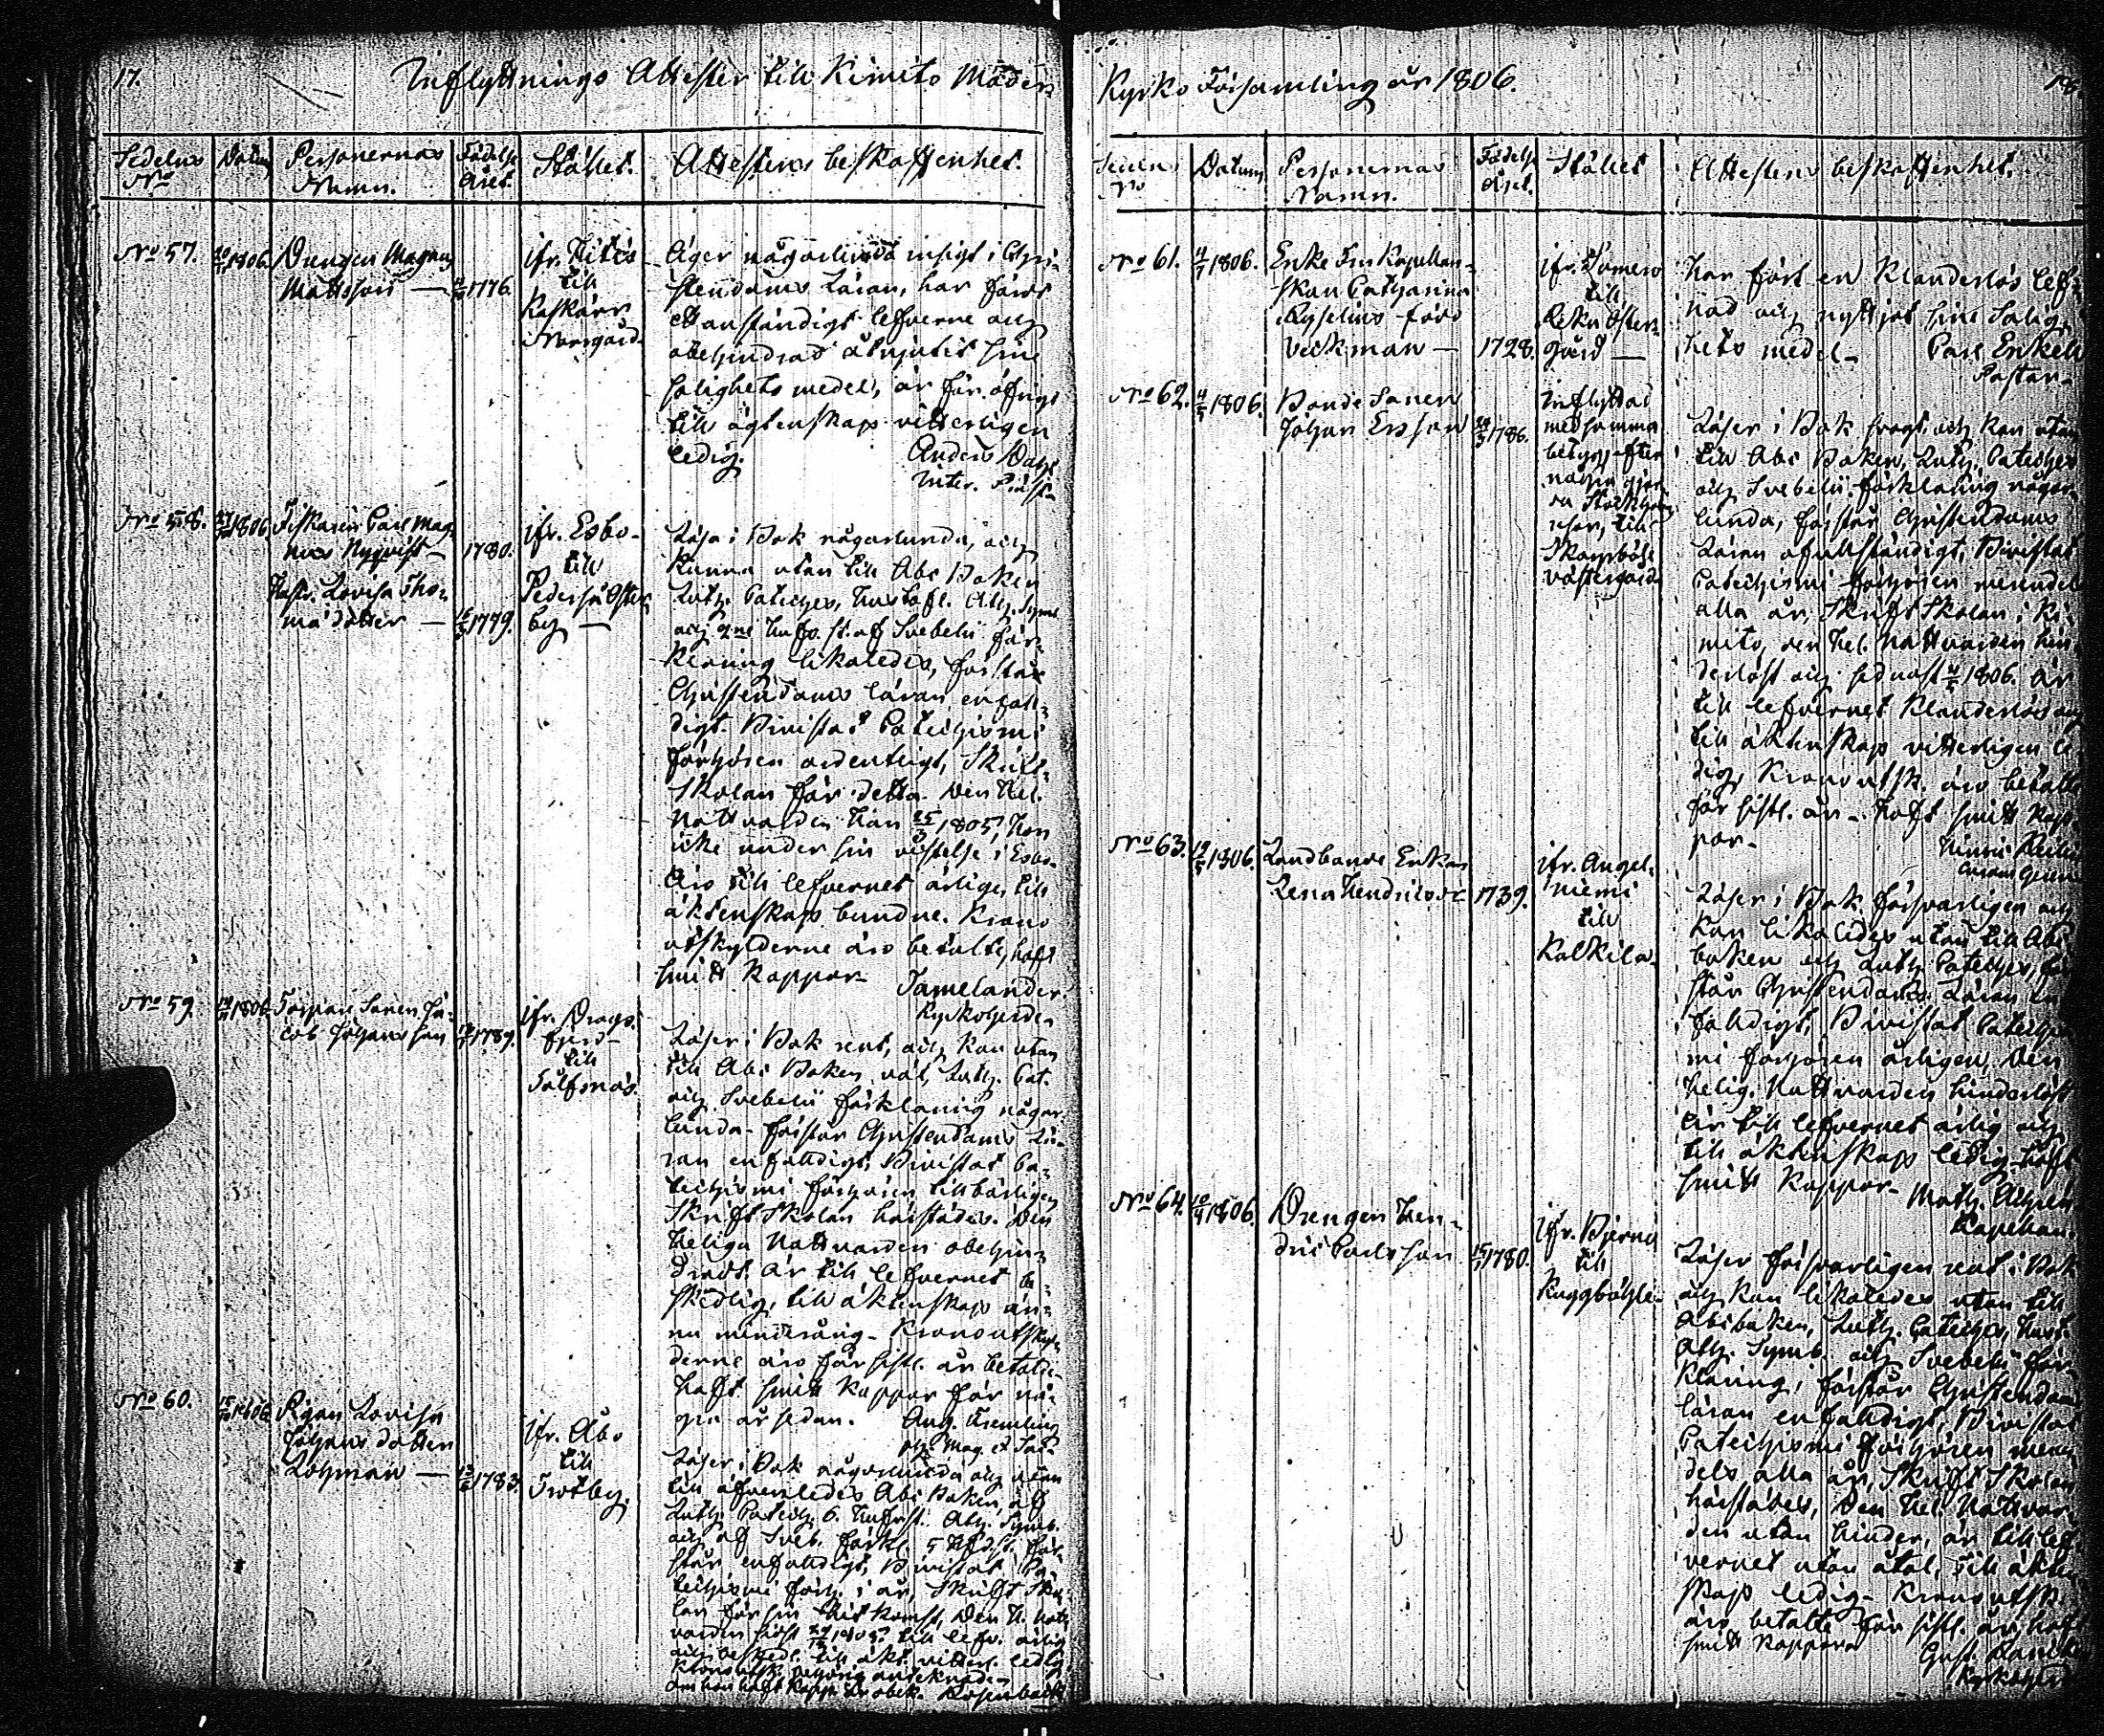 17.
Inflyttnings Attester till Kimito Moder
Sedelns No
Datum
Personernas Namn.
Födelse Året.
Stället.
Attestens beskaffenhet.
No 57.
1806.
Drengen Magnus
Mattsson —
1776.
ifr. Hitis
till
Kaskärr
Norrgård.
Äger någorlunda insigt i Chri-
stendoms Läran, har fört
ett anständigt lefverne och
obehindrad åtnjutit sine
salighets medel, är för öfrigt
till ägtenskap vitterligen
ledig.
Anders
No 58.
1806.
Fiskaren Carl Mag-
nus Nyqvist —
1780.
Hustr. Lovisa Tho-
mædotter —
1779.
ifr. Esbo-
till
Pederså Öster
by —
Läsa i Bok någorlunda, och
kunna utan till Abc Boken
Luth. Cateches, Hustafl. Ath. Symb.
förk-
laring likaledes, förstår
Christendoms läran enfal-
digt. Bivistat Catechismi
förhören ordentligt, Skrift-
skolan för detta. Den Hel.
Nattvarden han 25/3 1805, hon
icke under sin vistelse i Esbo.
Äro till lefvernet ärlige, till
äktenskap bundne. Krono
utskylderne äro betalte, haft
smitt koppor.
Tamelander.
Kyrkoherde.
No 59.
1806.
Torpare Sonen Ja-
cob Johansson
1789.
ifr. Drags-
fjerd
till
Sölfsnäs.
Läser i Bok rent, och kan utan
till Abc Boken väl, Luth. Cat.
och Svebelii förklaring någor-
lunda. förstår Christendoms Lä-
ran enfaldigt, Bivistat Ca-
techismi förhören tillbörligen
Skriftskolan härstädes. Den
Heliga Nattvarden obehin-
drat. Är till lefvernet be-
skedlig, till äktenskap än-
nu minderårig. Kronoutskyl-
derne äro för sistl. år betalde.
haft smitt koppor för nå-
gra år sedan.
No 60.
1806.
Pigan Lovisa
Johansdotter
Lohman —
1783.
ifr. Åbo
till
Trotby.
Läser i Bok någorlunda och utan
till äfvenledes Abc Boken, af
Luth. Catech. 6. Hufvst. Ath. Symb.
och af Sveb. förkl. 5 Hfdst. för-
står enfaldigt, Bivistat Ca-
techismi förh. i år, Skrift Sko-
lan för sin hitkomst, Den H. Natt-
varden sidst 1805. till lefv. ärlig
och beskedl. till äkt. vitterl. ledig
Rosenback
Kyrko Församling år 1806.
18.
Sedelns No
Datum
Personernas Namn.
Födelse Året.
Stället
Attestens beskaffenhet.
No 61.
1806.
Enke Fru Kapellan-
skan Catharina
född
Veckman —
1728.
ifr. Somero
till
Reku Öster-
gård —
Har fört en klanderlös lef-
nad och nyttjat sine Salig-
hets medel.
Carl Enkell
Pastor.
No 62.
1806.
Bonde Sonen
Johan Ersson
1786.
inflyttad
med samma
betyg, efter
några gjor-
da Stockholms
resor, till
Skogsböle
västergård.
Läser i Bok svagt, och kan utan
till Abc Boken, Luth. Cateches
och Svebelii förklaring någor-
lunda, förstår Christendoms
Läran ofullständigt, Bivistat
Catechismi förhören merendels
alla år, Skrift Skolan i Ki-
mito, den Hel. Nattvarden hin-
derlöst och sednast 1806. är
till lefvernet klanderlös och
till äktenskap vitterligen le-
dig, Kronoutsk. äro betalte
för sistl. år. Haft smitt kop-
por.
No 63.
1806.
Landbonde Enkan
Lena Hendrics dr
1739.
ifr. Angel-
niemi
till
Kalkila.
Läser i Bok försvarligen och
kan likaledes utan till Abc
boken och Luth. Cateches, för-
står Christendoms Läran en-
faldigt, Bivistat Catechis-
mi förhören årligen, Den
helig. Nattvarden hinderlöst
Är till lefvernet ärlig och
till äktenskap ledig. haft
smitt koppor.
Kapellan.
No 64.
1806.
Drengen Hen-
dric Carlsson
1780.
ifr. Bjerno
till
Ruggböhle.
Läser försvarligen rent i Bok
och kan likaledes utan till
Abcboken, Luth. Cateches, Hust.
Ath. Symb. och Svebelii för-
klaring, förstår Christendoms
läran enfaldigt, Bivistat
Catechismi förhören meren-
dels alla år, Skrift Skolan
härstädes, Den Hel. Nattvar-
den utan hinder, är till lef-
vernet utan åtal, till äkten-
skap ledig. Kronoutsk.
äro betalte för sistl. år, haft
smitt koppor.
Kyrkoherde